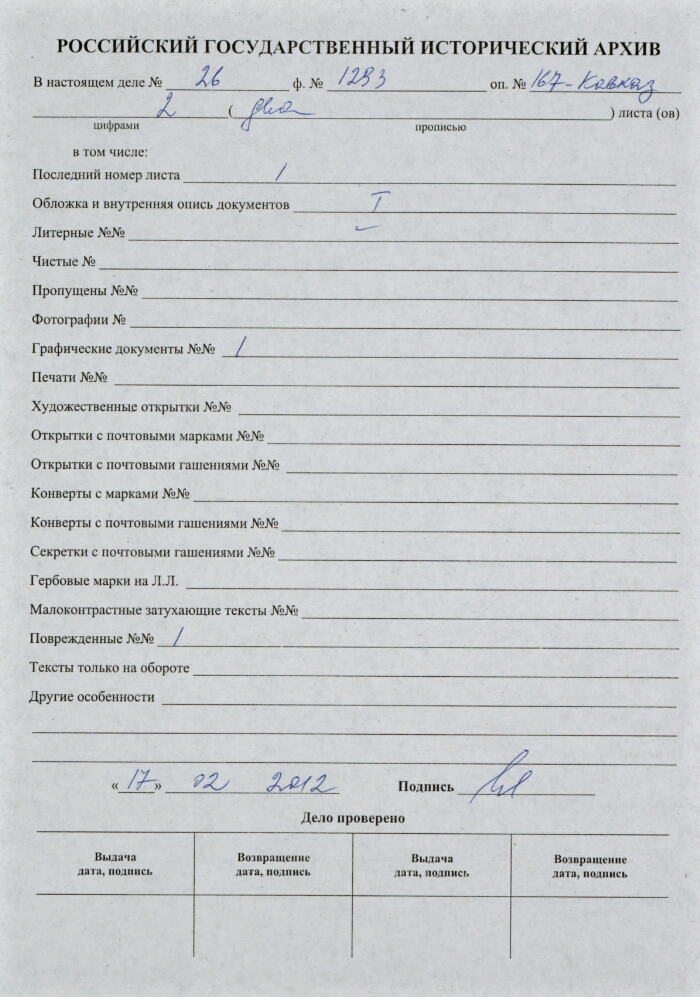 РОССИЙСКИЙ ГОСУДАРСТВЕННЫЙ ИСТОРИЧЕСКИЙ АРХИВ
В настоящем деле № 26 ф. № 1293 оп. № 167-Кавказ
2 ( два ) листа (ов)
цифрами прописью
в том числе:
Последний номер листа 1
Обложка и внутренняя опись документов I
Литерные №№ –
Чистые №
Пропущены №№
Фотографии №
Графические документы №№ 1
Печати №№
Художественные открытки №№
Открытки с почтовыми марками №№
Открытки с почтовыми гашениями №№
Конверты с марками №№
Конверты с почтовыми гашениями №№
Секретки с почтовыми гашениями №№
Гербовые марки на Л.Л.
Малоконтрастные затухающие тексты №№
Поврежденные №№ 1
Тексты только на обороте
Другие особенности
«17» 02 2012 Подпись
Дело проверено
Выдача Возвращение Выдача Возвращение
дата, подпись дата, подпись дата, подпись дата, подпись